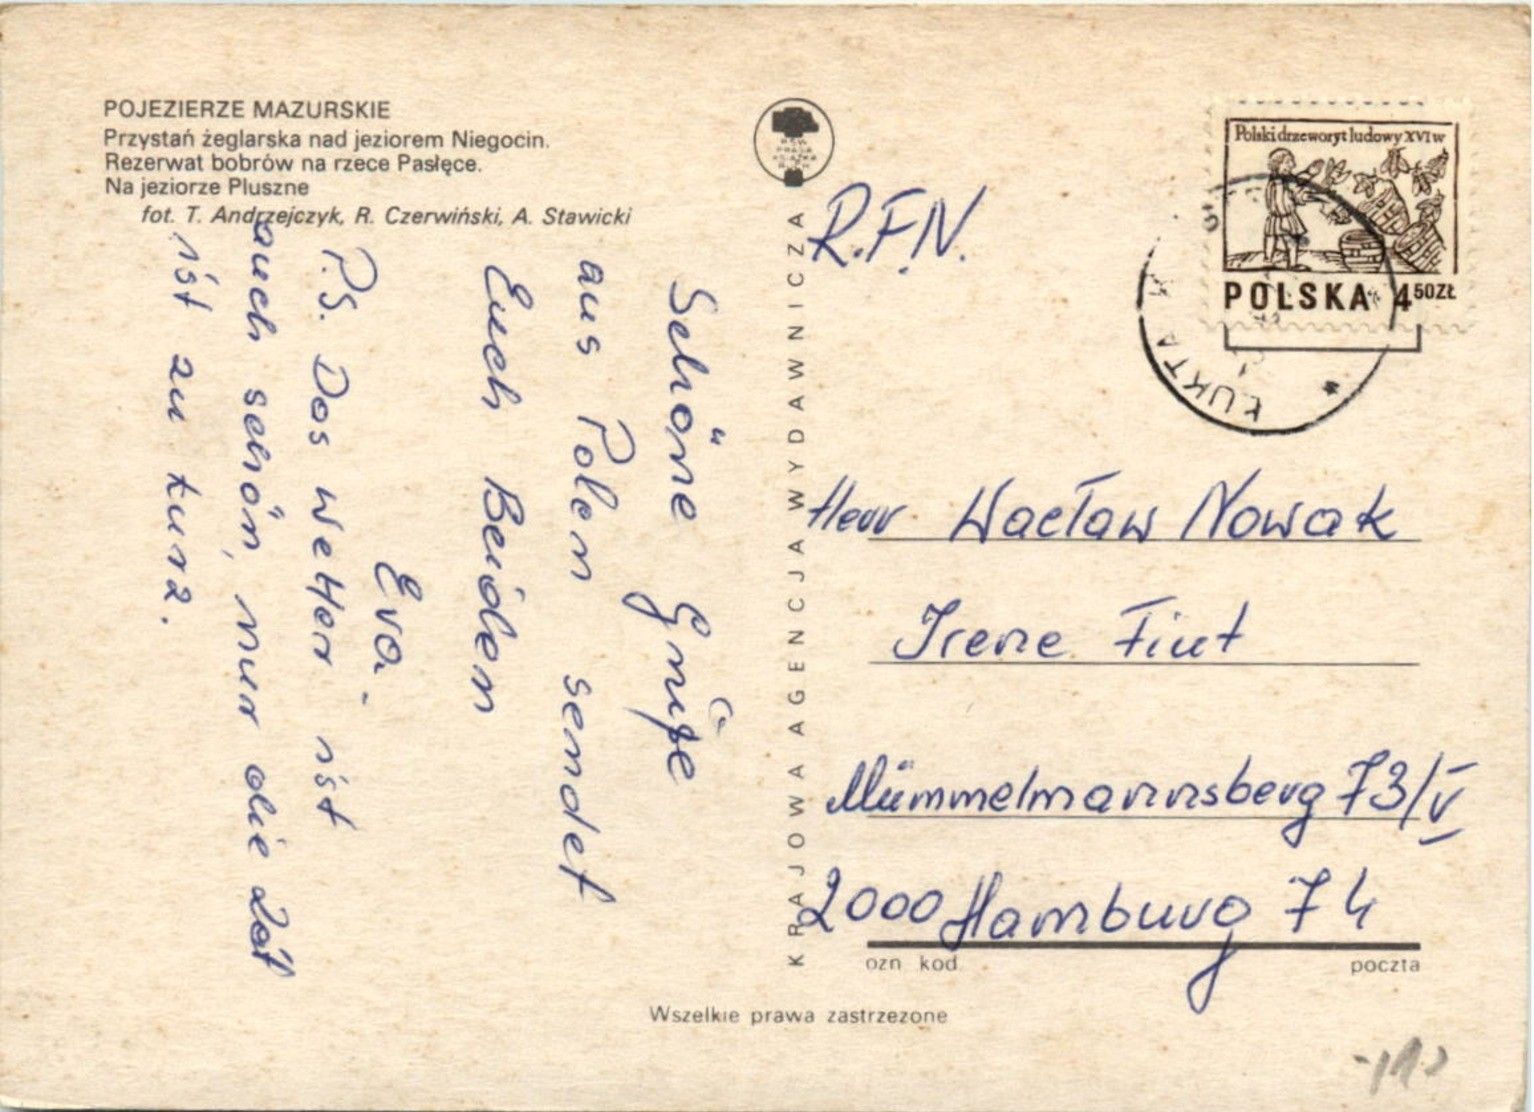 POJEZIERZE MAZURSKIE
Przystań żeglarska nad jeziorem Niegocin.
Rezerwat bobrów na rzece Pasłęce.
Na jeziorze Pluszne
fot. T. Andrzejczyk, R. Czerwiński, A. Stawicki
Schöne Grüße
aus Polen sendet
Euch Beiden
Eva.
P.S. Das Wetter ist
auch schön, nur die Zeit
ist zu kurz.
KRAJOWA AGENCJA WYDAWNICZA
RSW
PRASA
KSIĄŻKA
RUCH
R.F.N.
Polski drzeworyt ludowy XVI w
POLSKA 4 50ZŁ
ŁUKTA
Herr Wacław Nowak
Irene Fiut
Mümmelmannsberg 73/V
2000 Hamburg 74
ozn kod
poczta
Wszelkie prawa zastrzezone